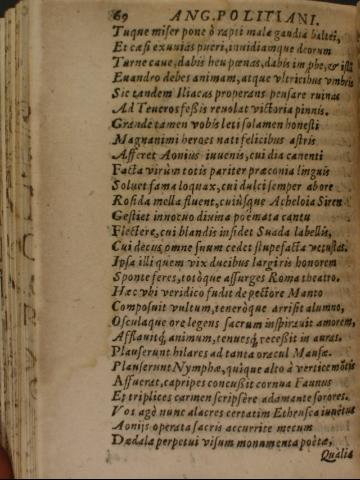 69 ANG. POLITIANI.
Tuque miser pone ô rapti mala gaudia baltei,
Et cæsi exuuias pueri, inuidiamque deorum
Turne caue, dabis heu pœnas, dabis improbe, & isti
Euandro debes animam, atque vltricibus vmbris
Sic tandem Iliacas properans pensare ruinas
Ad Teucros fessis reuolat victoria pinnis.
Grande tamen vobis leti solamen honesti
Magnanimi heroes nati felicibus astris
Afferet Aonius iuuenis, cui dia canenti
Facta virûm totis pariter præconia linguis
Soluet fama loquax, cui dulci semper ab ore
Rosida mella fluent, cuiúsque Acheloia Siren
Gestiet innocuo diuina poëmata cantu
Flectere, cui blandis insidet Suada labellis,
Cui decus omne suum cedet stupefacta vetustas.
Ipsa illi quem vix ducibus largiris honorem
Sponte feres, totóque assurges Roma theatro.
Hæc vbi veridico fudit de pectore Manto
Composuit vultum, teneróque arrisit alumno,
Osculaque ore legens sacrum inspirauit amorem,
Afflauitq́; animum, tenuesq́; recessit in auras.
Plauserunt hilares ad tanta oracula Musæ.
Plauserunt Nymphæ, quique alto à vertice mōtis
Assuerat, capripes concussit cornua Faunus
Et triplices carmen scripsêre adamante sorores.
Vos agè nunc alacres certatim Ethrusca iuuētus
Aonijs operata sacris accurrite mecum
Dædala perpetui visum monumenta poëtæ,
Qualia